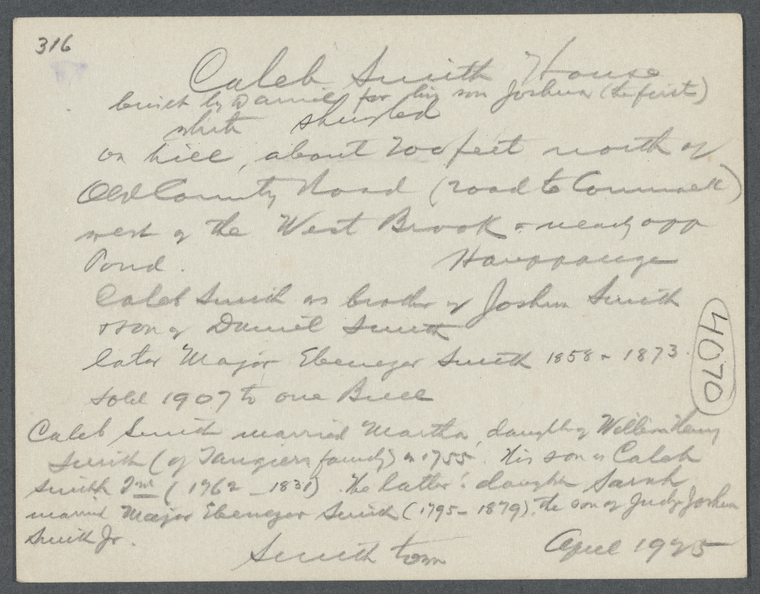 316
Caleb Smith House
built by Daniel for his son Joshua (the first)
white shingled
on hill, about 200 feet north of
Old County Road (road to Commack)
west of the West Brook & nearly opp
Pond. Hauppauge
Caleb Smith was brother of Joshua Smith
& son of Daniel Smith
later Major Ebenezer Smith 1858 & 1873.
sold 1907 to one Bull
4070
Caleb Smith married Martha, daughter of William Henry
Smith (of Tangiers family) in 1755. His son is Caleb
Smith 2nd (1762 - 1831) The latter's daughter Sarah
married Major Ebenezer Smith (1795 - 1879), the son of Judge Joshua
Smith Jr.
Smithtown April 1925